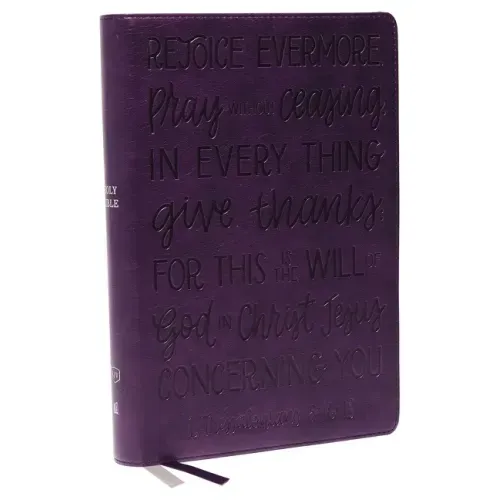 REJOICE EVERMORE.
Pray WITHOUT ceasing.
IN EVERY THING
give thanks:
FOR THIS IS THE WILL OF
God IN Christ Jesus
CONCERNING YOU
1 Thessalonians 5:16-18
HOLY
BIBLE
KJV